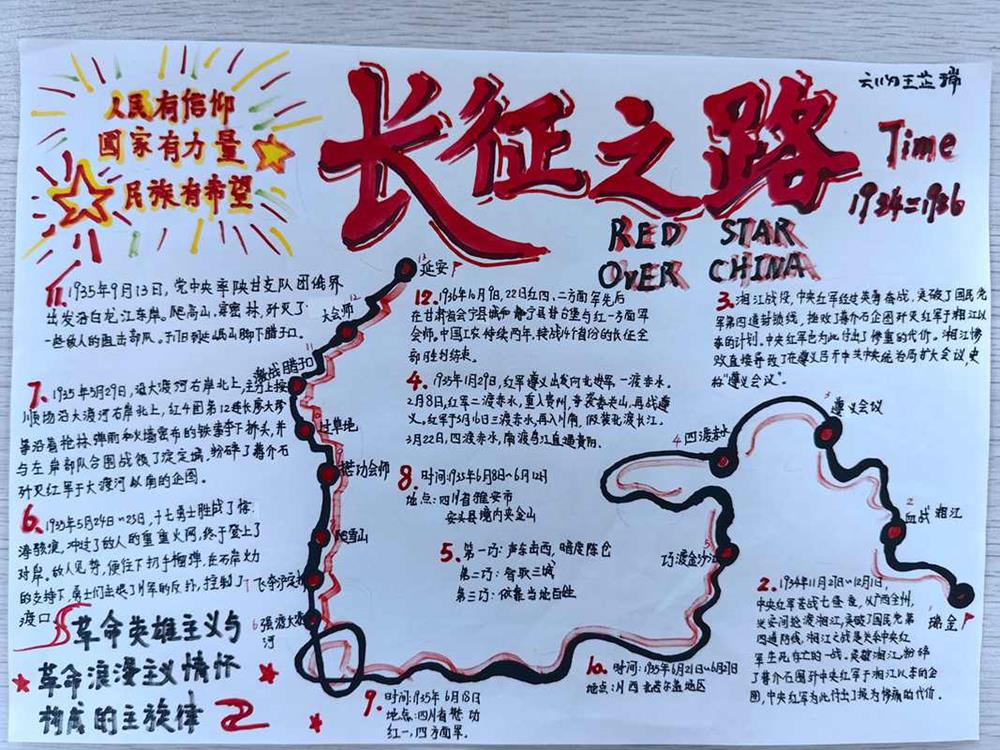 人民有信仰
国家有力量
民族有希望
长征之路
Time
1934=1936
RED STAR
OVER CHINA
11.1935年9月13日，党中央率陕甘支队从俄界
出发沿白龙江东岸。爬高山，穿密林，歼灭了
12.1936年10月9日，22日红四、二方面军先后
在甘肃省会宁县城和静宁县将台堡与红一方面军
会师。中国工农持续两年，转战14个省份的长征全
部胜利结束。
3.湘江战役，中央红军经过英勇奋战，突破了国民党
军第四道封锁线，挫败了蒋介石企图歼灭红军于湘江以
东的计划。中央红军也为此付出了惨重的代价。湘江惨
败直接导致了在遵义召开中共中央政治局扩大会议史
称“遵义会议”。
7.1935年5月29日，沿大渡河右岸北上，主力上按
顺场沿大渡河右岸北上，红4团第12连长廖大珍
等沿着枪林弹雨和火墙密布的铁索夺下桥头，并
与左岸部队合围战领了泸定城，粉碎了蒋介石
歼灭红军于大渡河以南的企图。
4.1935年1月29日，红军遵义出发向北进军，一渡赤水。
2月8日，红军二渡赤水，重入贵州，
红军于3月16日三渡赤水，再入川南，
3月22日，四渡赤水，南渡乌江直逼贵阳。
8.时间：1935年6月8日~6月12日
地点：四川省雅安市
宝兴县境内夹金山
6.1935年5月24日~25日，十七勇士胜战了惊
涛骇浪，冲过了敌人的重重火网，终于登上了
对岸。敌人见势，便往下扔手榴弹，在右岸火力
渡口。
5.第一巧：声东击西，暗度陈仓
第二巧：智取三城
第三巧：依靠当地百姓
革命英雄主义与
革命浪漫主义情怀
构成的主旋律
9.时间：1935年6月18日
地点：四川省懋功
红一，四方面军。
10.时间：1935年6月21日~6月27日
2.1934年11月27日~12月1日，
中央红军苦战七昼夜，从广西全州，
兴安间抢渡湘江，突破了国民党第
四道防线。湘江之战是关系中央红
军生死存亡的一战。突破湘江，粉碎
了蒋介石围歼中央红军于湘江以东的企
图，中央红军为此付出了极为惨痛的代价。
13 延安
12 大会师
11 激战腊子口
过草地
9懋功会师
爬雪山
7飞夺泸定桥
6强渡大渡
河
5巧渡金沙江
4四渡赤水
3遵义会议
2
血战湘江
瑞金